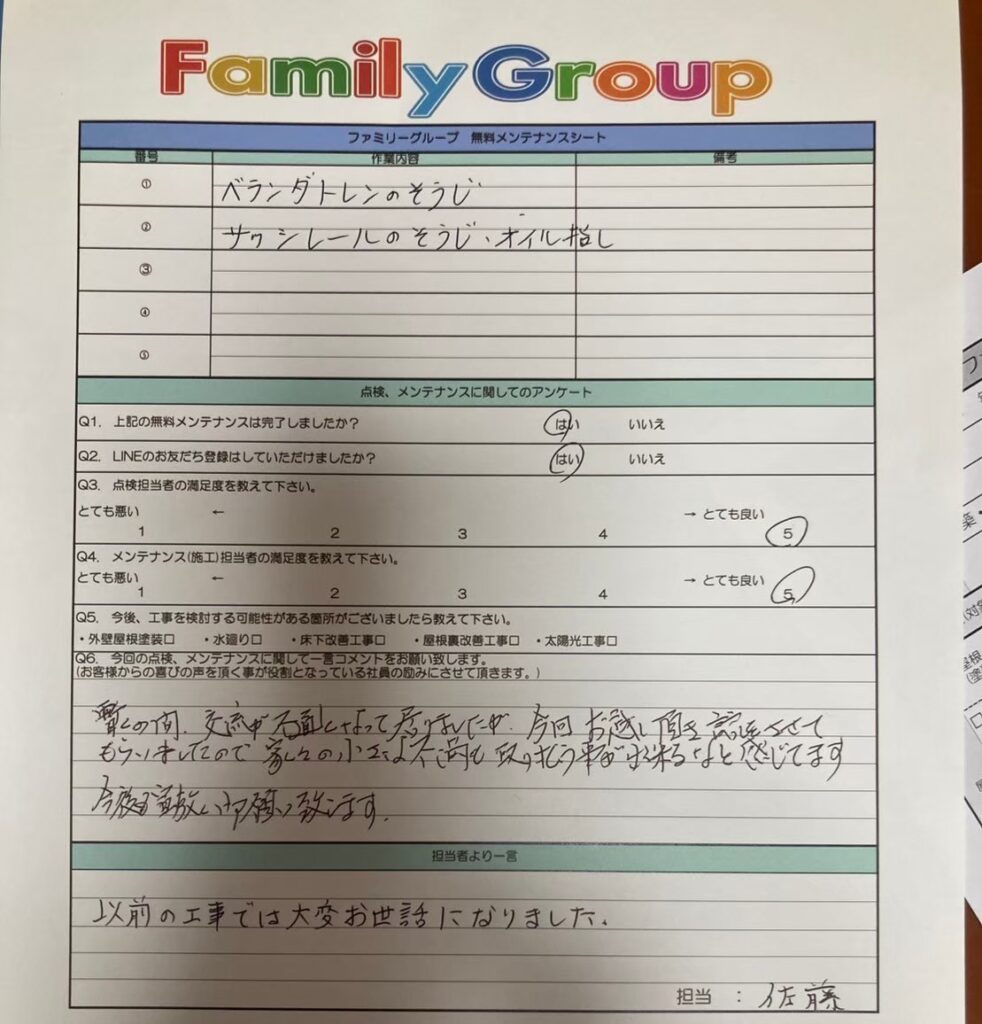 Family Group
ファミリーグループ 無料メンテナンスシート
番号 作業内容 備考
① ベランダトレンのそうじ
② サッシレールのそうじ、オイル指し
③
④
⑤
点検、メンテナンスに関してのアンケート
Q1. 上記の無料メンテナンスは完了しましたか? はい いいえ
Q2. LINEのお友だち登録はしていただけましたか? はい いいえ
Q3. 点検担当者の満足度を教えて下さい。
とても悪い ← → とても良い
1 2 3 4 5
Q4. メンテナンス(施工)担当者の満足度を教えて下さい。
とても悪い ← → とても良い
1 2 3 4 5
Q5. 今後、工事を検討する可能性がある箇所がございましたら教えて下さい。
・外壁屋根塗装□ ・水廻り□ ・床下改善工事□ ・屋根裏改善工事□ ・太陽光工事□
Q6. 今回の点検、メンテナンスに関して一言コメントをお願い致します。
(お客様からの喜びの声を頂く事が役割となっている社員の励みにさせて頂きます。)
暫くの間、交流が なって居りましたが、今回 お越し頂き 話をさせて
もらいましたので 家々の小さな不満も 取り払う事が出来るなと感じてます
今後も宜敷くお願い致します。
担当者より一言
以前の工事では大変お世話になりました。
担当 : 佐藤